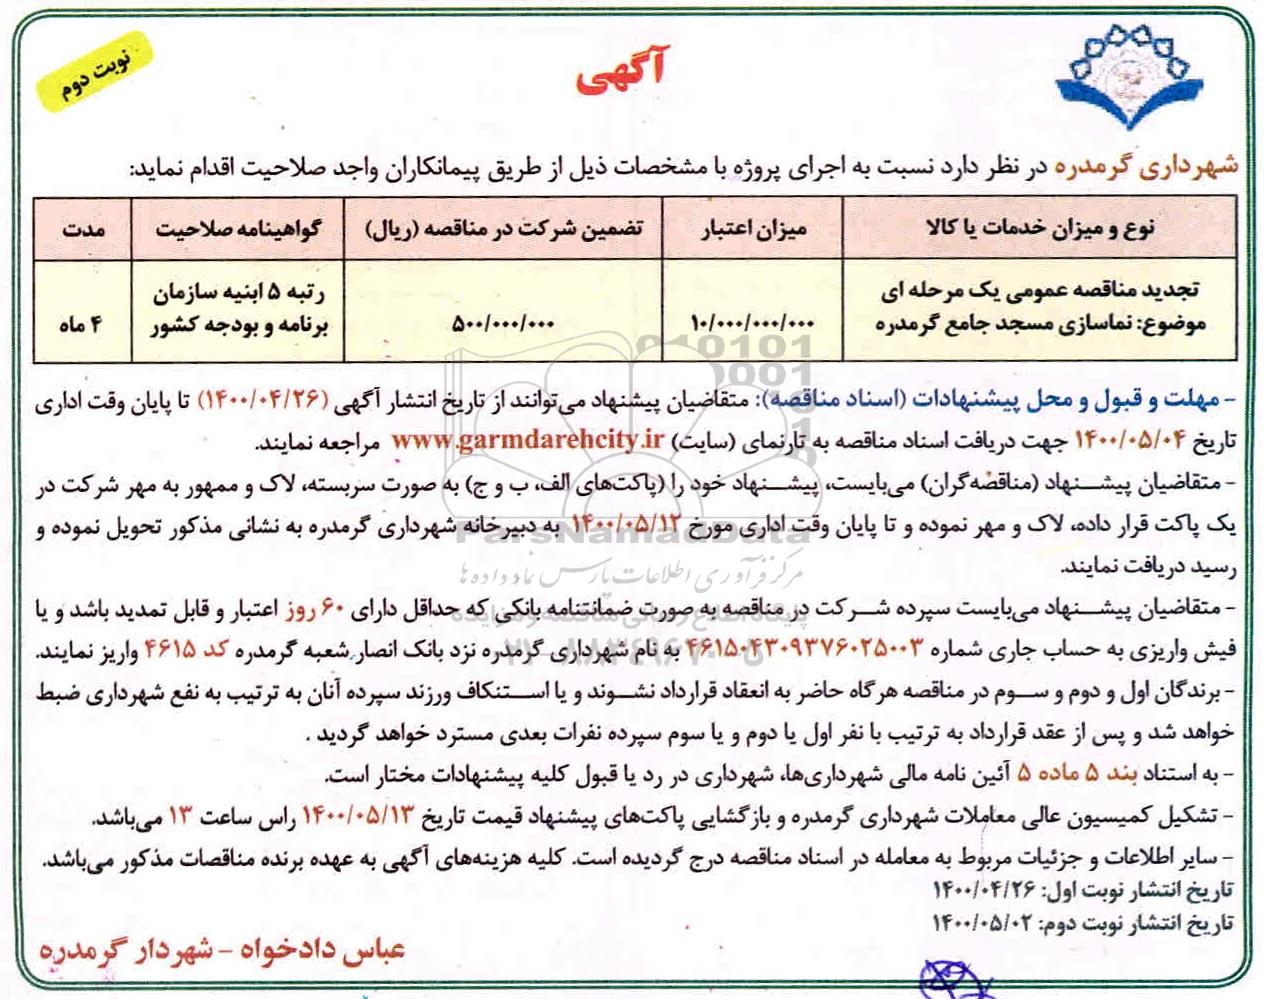 نوبت دوم
آگهی
شهرداری گرمدره در نظر دارد نسبت به اجرای پروژه با مشخصات ذیل از طریق پیمانکاران واجد صلاحیت اقدام نماید:
نوع و میزان خدمات یا کالا
میزان اعتبار
تضمین شرکت در مناقصه (ریال)
گواهینامه صلاحیت
مدت
تجدید مناقصه عمومی یک مرحله ای
موضوع: نماسازی مسجد جامع گرمدره
۱۰/۰۰۰/۰۰۰/۰۰۰
۵۰۰/۰۰۰/۰۰۰
رتبه ۵ ابنیه سازمان
برنامه و بودجه کشور
۴ ماه
- مهلت و قبول و محل پیشنهادات (اسناد مناقصه): متقاضیان پیشنهاد می‌توانند از تاریخ انتشار آگهی (۱۴۰۰/۰۴/۲۶) تا پایان وقت اداری
تاریخ ۱۴۰۰/۰۵/۰۴ جهت دریافت اسناد مناقصه به تارنمای (سایت) www.garmdarehcity.ir مراجعه نمایند.
- متقاضیان پیشنهاد (مناقصه‌گران) می‌بایست، پیشنهاد خود را (پاکت‌های الف، ب و ج) به صورت سربسته، لاک و ممهور به مهر شرکت در
یک پاکت قرار داده، لاک و مهر نموده و تا پایان وقت اداری مورخ ۱۴۰۰/۰۵/۱۲ به دبیرخانه شهرداری گرمدره به نشانی مذکور تحویل نموده و
رسید دریافت نمایند.
- متقاضیان پیشنهاد می‌بایست سپرده شرکت در مناقصه به صورت ضمانتنامه بانکی که حداقل دارای ۶۰ روز اعتبار و قابل تمدید باشد و یا
فیش واریزی به حساب جاری شماره ۴۶۱۵۰۴۳۰۹۳۷۶۰۲۵۰۰۳ به نام شهرداری گرمدره نزد بانک انصار شعبه گرمدره کد ۴۶۱۵ واریز نمایند.
- برندگان اول و دوم و سوم در مناقصه هرگاه حاضر به انعقاد قرارداد نشوند و یا استنکاف ورزند سپرده آنان به ترتیب به نفع شهرداری ضبط
خواهد شد و پس از عقد قرارداد به ترتیب با نفر اول یا دوم و یا سوم سپرده نفرات بعدی مسترد خواهد گردید .
- به استناد بند ۵ ماده ۵ آئین نامه مالی شهرداری‌ها، شهرداری در رد یا قبول کلیه پیشنهادات مختار است.
- تشکیل کمیسیون عالی معاملات شهرداری گرمدره و بازگشایی پاکت‌های پیشنهاد قیمت تاریخ ۱۴۰۰/۰۵/۱۳ راس ساعت ۱۳ می‌باشد.
- سایر اطلاعات و جزئیات مربوط به معامله در اسناد مناقصه درج گردیده است. کلیه هزینه‌های آگهی به عهده برنده مناقصات مذکور می‌باشد.
تاریخ انتشار نوبت اول: ۱۴۰۰/۰۴/۲۶
تاریخ انتشار نوبت دوم: ۱۴۰۰/۰۵/۰۲
عباس دادخواه - شهردار گرمدره
ParsNamadData
مرکز فرآوری اطلاعات پارس نماد داده ها